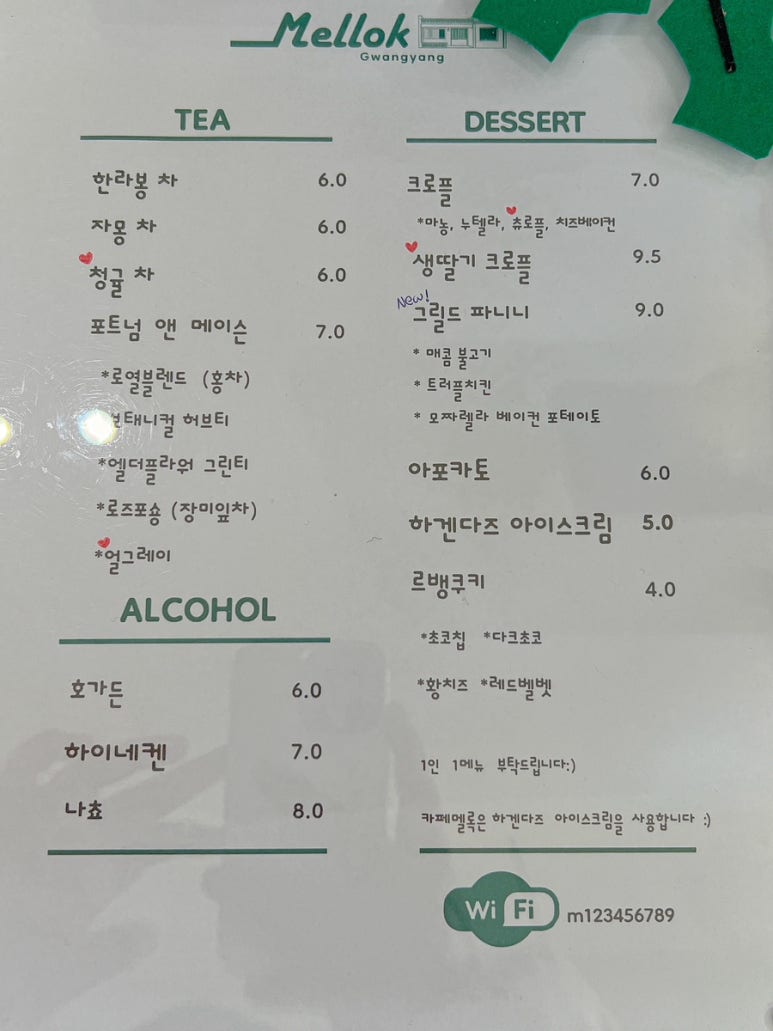 Mellok
Gwangyang
TEA
한라봉 차 6.0
자몽 차 6.0
청귤 차 6.0
포트넘 앤 메이슨 7.0
*로열블렌드 (홍차)
보태니컬 허브티
*엘더플라워 그린티
*로즈포숑 (장미잎차)
*얼그레이
ALCOHOL
호가든 6.0
하이네켄 7.0
나쵸 8.0
DESSERT
크로플 7.0
*마농, 누텔라, 츄로플, 치즈베이컨
생딸기 크로플 9.5
New!
그릴드 파니니 9.0
* 매콤 불고기
* 트러플치킨
* 모짜렐라 베이컨 포테이토
아포카토 6.0
하겐다즈 아이스크림 5.0
르뱅쿠키 4.0
*초코칩 *다크초코
*황치즈 *레드벨벳
1인 1메뉴 부탁드립니다:)
카페멜록은 하겐다즈 아이스크림을 사용합니다 :)
WiFi m123456789